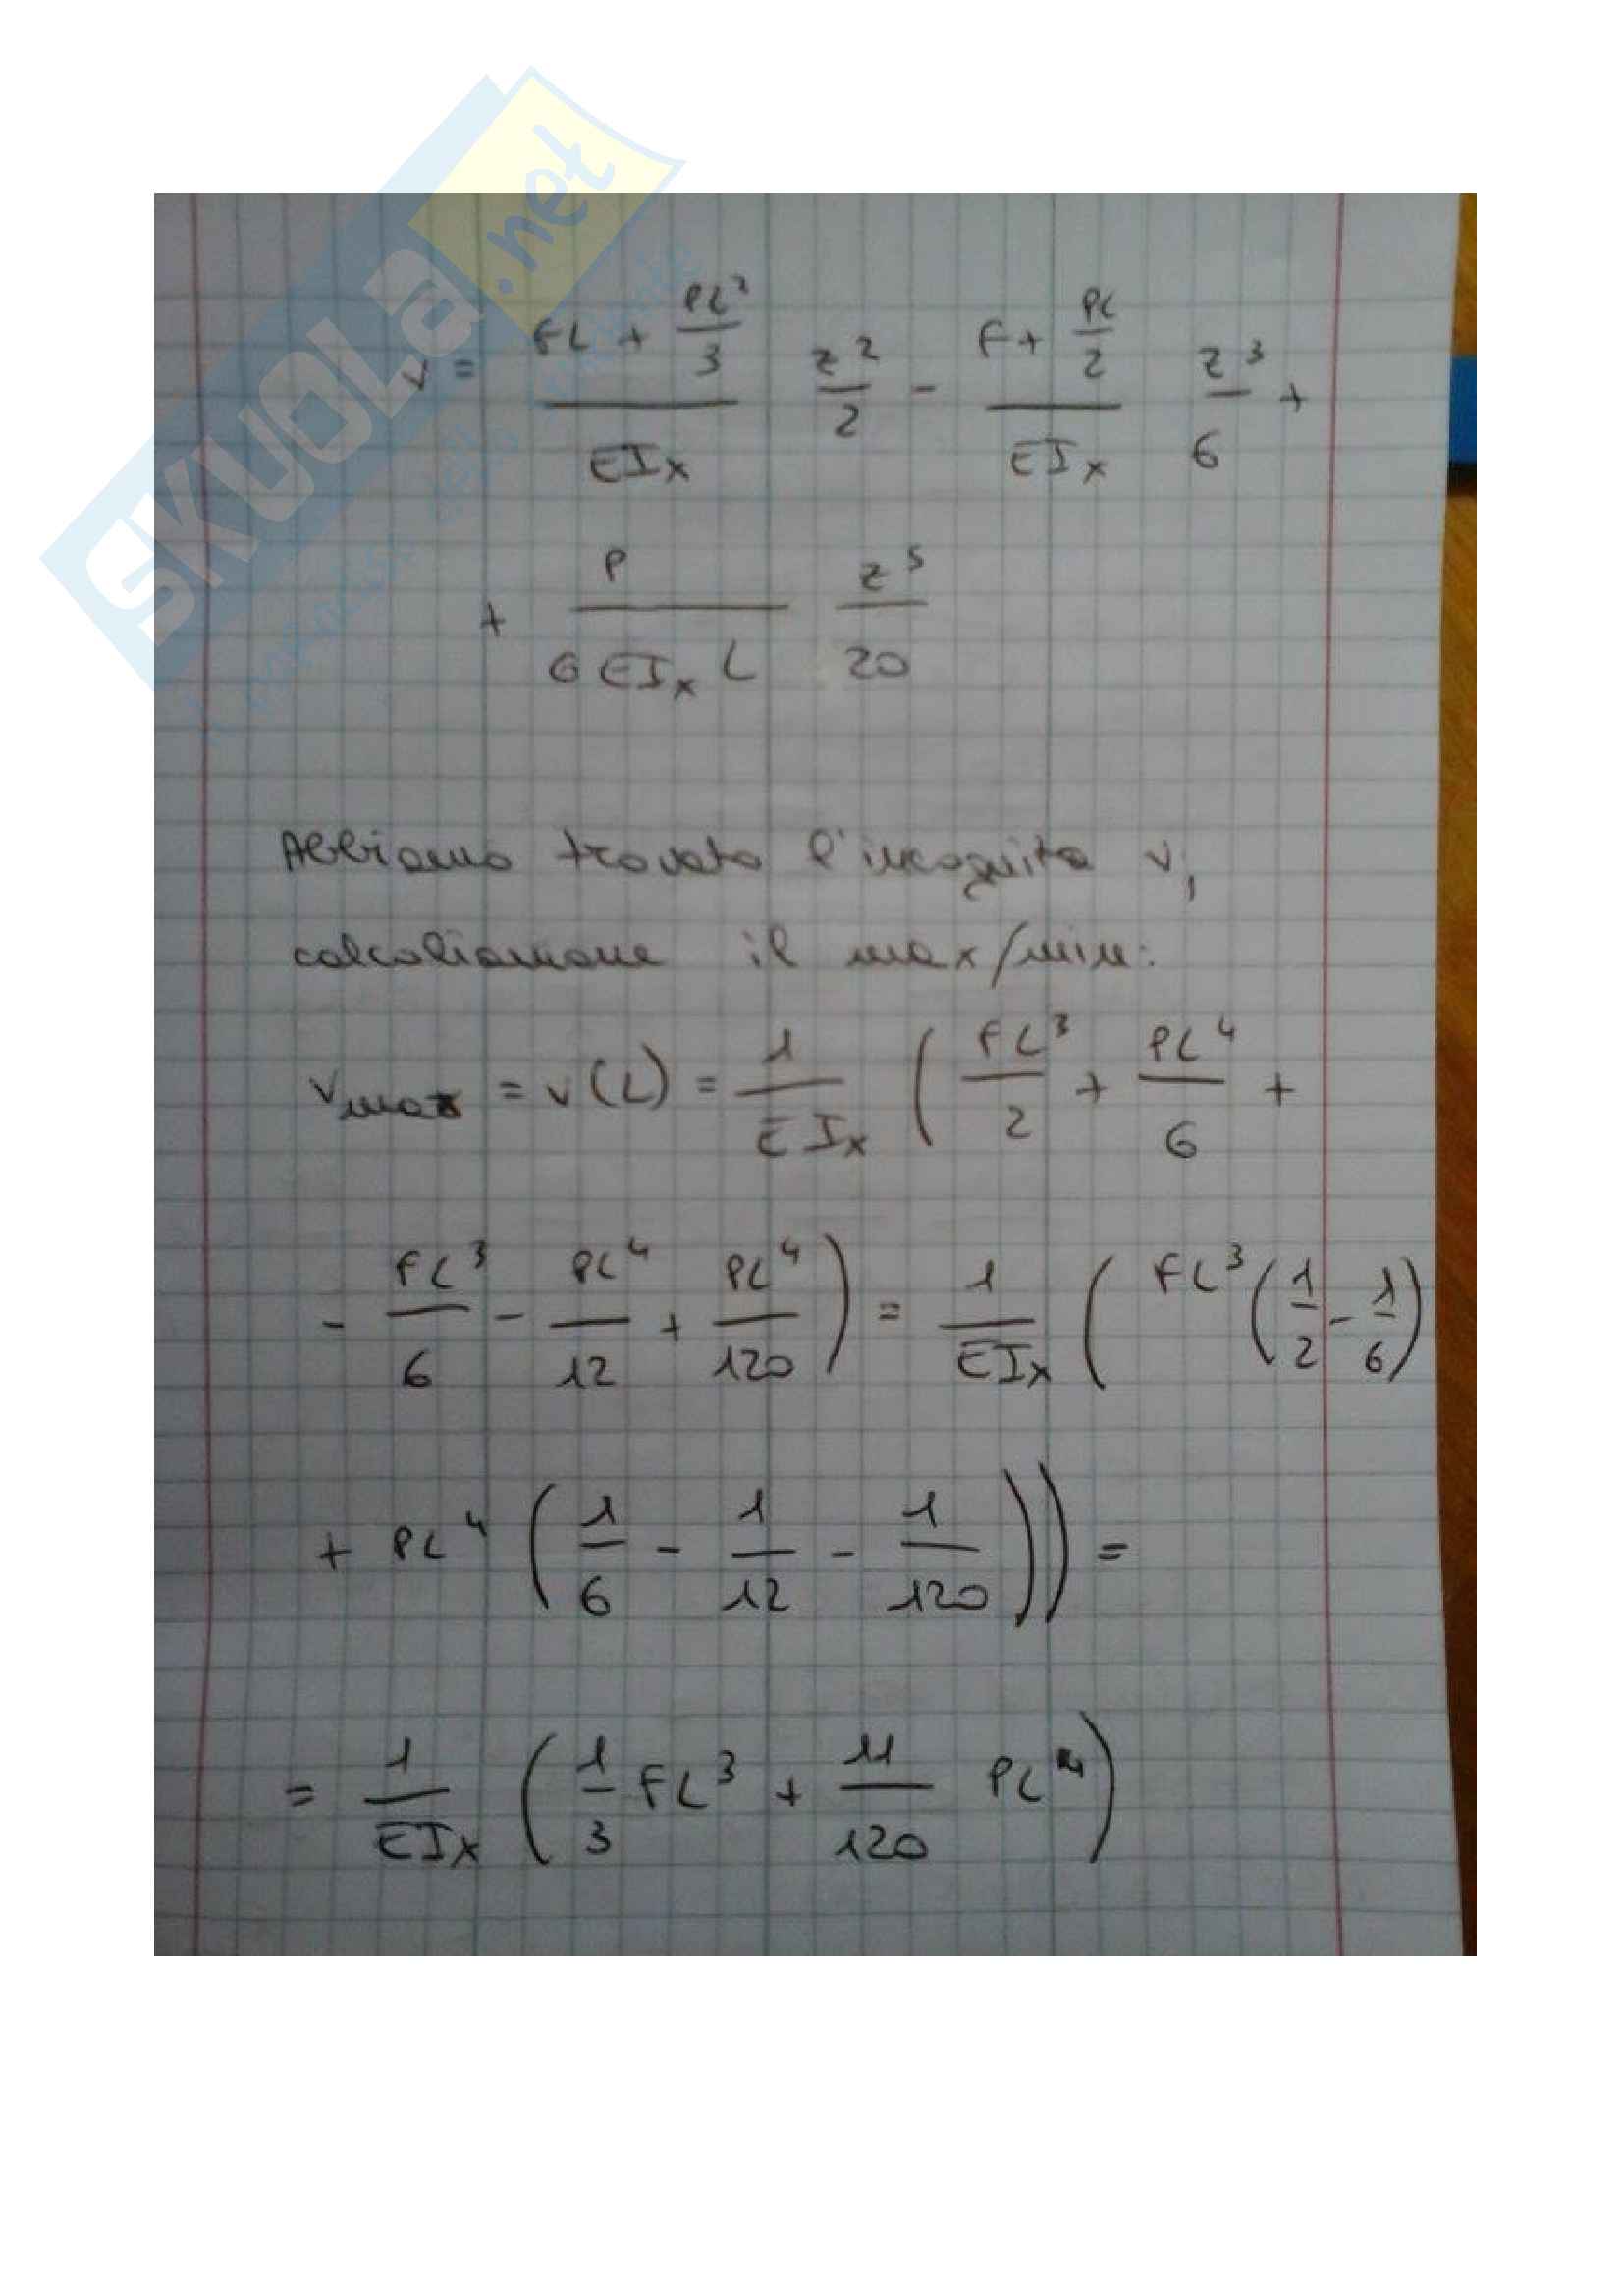 SKUOLA.net
v = \frac{FL + \frac{PL^2}{3}}{EI_x} \frac{z^2}{2} - \frac{F + \frac{PL}{2}}{EI_x} \frac{z^3}{6} +
+ \frac{P}{6 EI_x L} \frac{z^5}{20}
Abbiamo trovato l'incognita v,
calcoliamone il max/min:
v_{max} = v(L) = \frac{1}{EI_x} ( \frac{FL^3}{2} + \frac{PL^4}{6} +
- \frac{FL^3}{6} - \frac{PL^4}{12} + \frac{PL^4}{120} ) = \frac{1}{EI_x} ( FL^3 ( \frac{1}{2} - \frac{1}{6} )
+ PL^4 ( \frac{1}{6} - \frac{1}{12} - \frac{1}{120} ) ) =
= \frac{1}{EI_x} ( \frac{1}{3} FL^3 + \frac{11}{120} PL^4 )